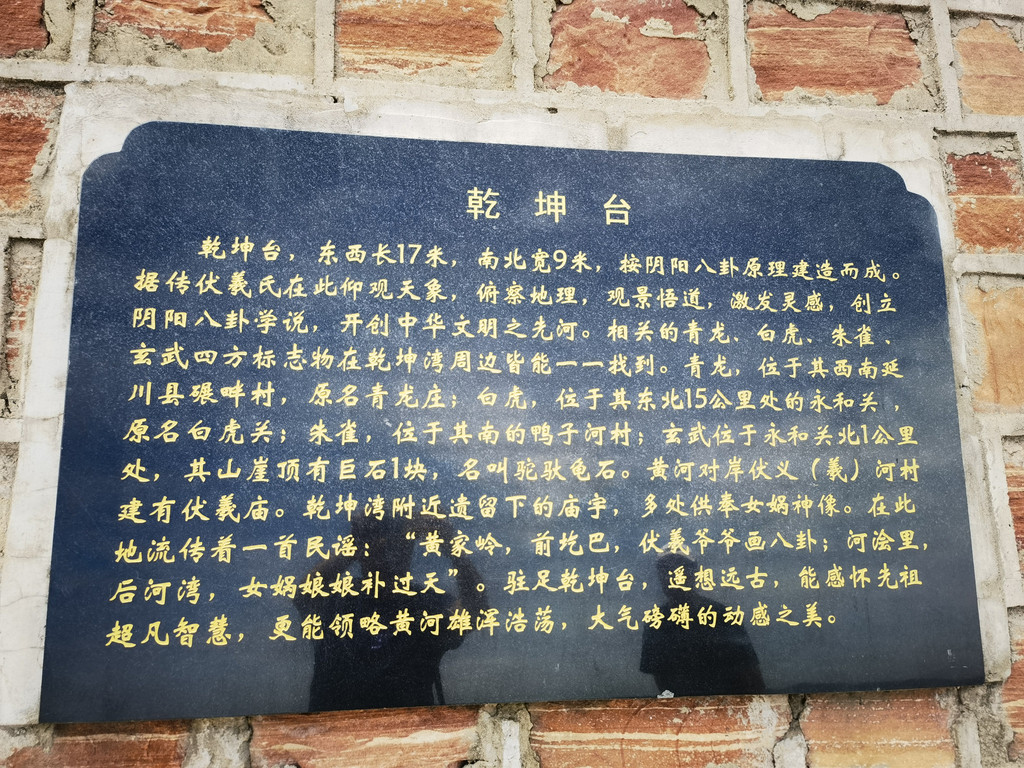 乾坤台
乾坤台，东西长17米，南北宽9米，按阴阳八卦原理建造而成。
据传伏羲氏在此仰观天象，俯察地理，观景悟道，激发灵感，创立
阴阳八卦学说，开创中华文明之先河。相关的青龙、白虎、朱雀、
玄武四方标志物在乾坤湾周边皆能一一找到。青龙，位于其西南延
川县碾畔村，原名青龙庄；白虎，位于其东北15公里处的永和关，
原名白虎关；朱雀，位于其南的鸭子河村；玄武位于永和关北1公里
处，其山崖顶有巨石1块，名叫驼驮龟石。黄河对岸伏义（羲）河村
建有伏羲庙。乾坤湾附近遗留下的庙宇，多处供奉女娲神像。在此
地流传着一首民谣：“黄家岭，前圪巴，伏羲爷爷画八卦；河浍里，
后河湾，女娲娘娘补过天”。驻足乾坤台，遥想远古，能感怀先祖
超凡智慧，更能领略黄河雄浑浩荡，大气磅礴的动感之美。